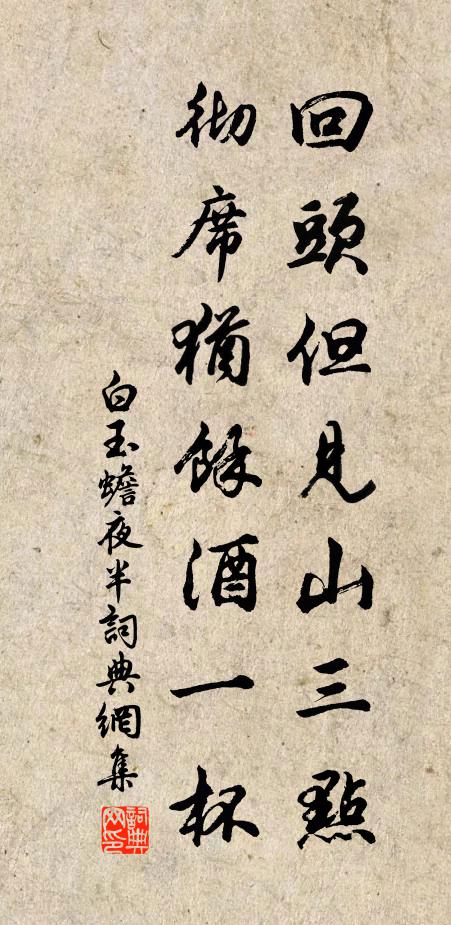 回頭但見山三點
徹席猶餘酒一杯
白玉蟾夜半詞典網集
詞典网印